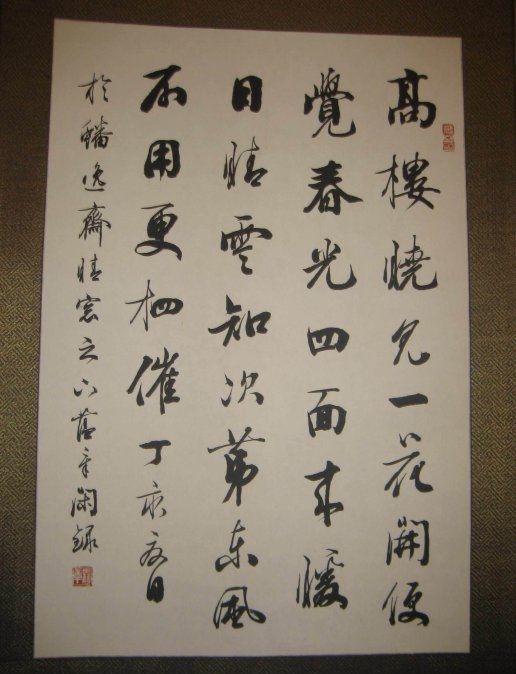 高樓曉見一花開便
覺春光四面来暖
日晴雲知次第東風
不用更相催丁亥夏日
於蟠逸齋晴窓之下錄